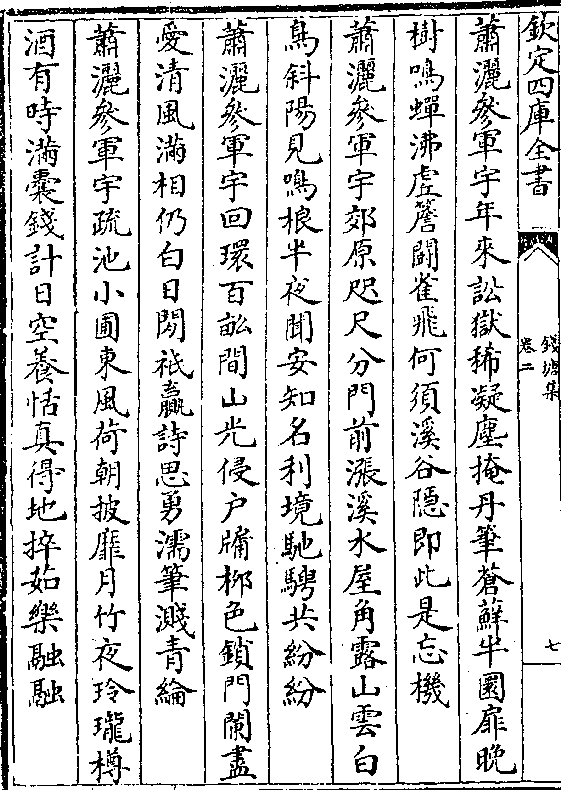 欽定四庫全書
錢塘集
卷二
七
蕭灑參軍宇年來訟獄稀凝塵掩丹筆蒼蘚半圜扉晚
樹鳴蟬沸虛簷鬭雀飛何須溪谷隱即此是忘機
蕭灑參軍宇郊原咫尺分門前漲溪水屋角露山雲白
鳥斜陽見鳴榔半夜聞安知名利境馳騁共紛紛
蕭灑參軍宇回環百畝間山光侵户牖栁色鎖門闌盡
愛清風滿相仍白日閒祗贏詩思勇濡筆濺青綸
蕭灑參軍宇疏池小圃東風荷朝披靡月竹夜玲瓏樽
酒有時滿囊錢計日空養恬真得地捽茹樂融融